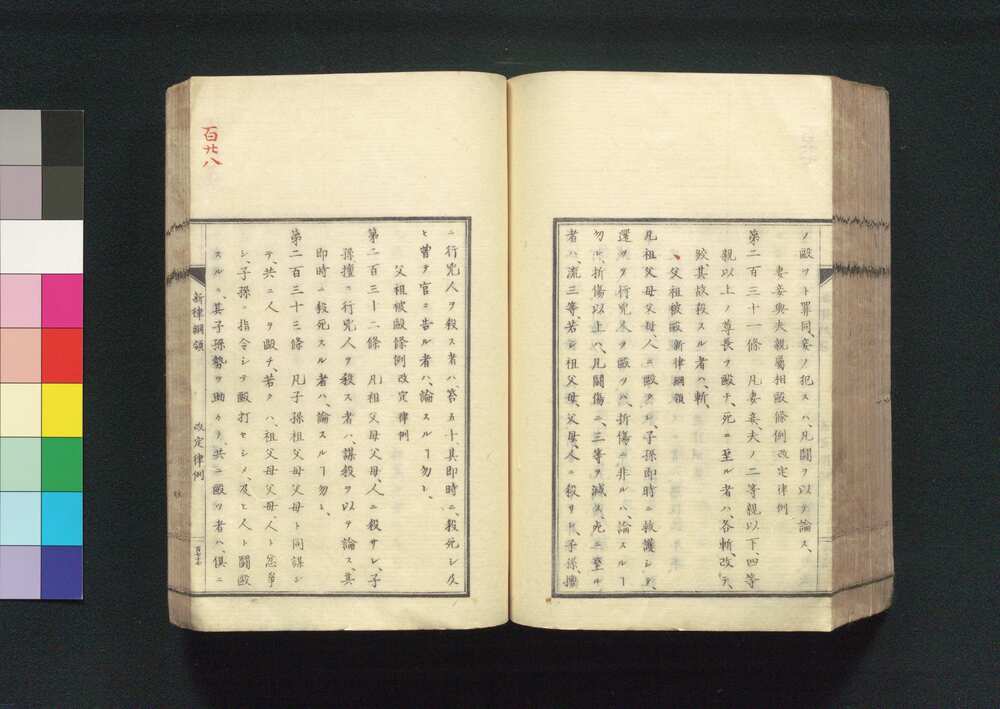 ノ毆ツト罪同、妾ノ犯スハ、凡鬪ヲ以テ論ス、
妻妾與夫親屬相毆條例改定律例
第二百三十一條 凡妻妾、夫ノ二等親以下、四等
親以上ノ尊長ヲ毆チ、死ニ至ル者ハ、各斬、改テ、
絞其故殺スル者ハ、斬、
父祖被毆新律綱領
凡祖父母父母人ニ毆タレ、子孫即時ニ救護シテ、
還ツテ行兇人ヲ毆ツハ、折傷ニ非ルハ、論スルー
勿レ、折傷以上ハ、凡鬪傷ニ、三等ヲ減ス、死ニ至ル
者ハ、流三等、若シ祖父母、父母、人ニ殺サレ、子孫、擅
ニ行兇人ヲ殺ス者ハ、笞五十、其即時ニ、殺死シ及
ヒ曽テ官ニ告ル者ハ、論スルー勿レ、
父祖被毆條例改定律例
第二百三十二條 凡祖父母父母、人ニ殺サレ、子
孫擅ニ行兇人ヲ殺ス者ハ、謀殺ヲ以テ論ス、其
即時ニ殺死スル者ハ、論スルー勿レ、
第二百三十三條 凡子孫祖父母父母ト同謀シ
テ、共ニ人ヲ毆チ、若クハ、祖父母父母、人ト忿爭
シ、子孫ニ指令シテ毆打セシメ、及ヒ人ト鬪毆
スルニ、其子孫勢ヲ助ケテ、共ニ毆ツ者ハ、俱ニ
新律綱領 改定律例
百廿八